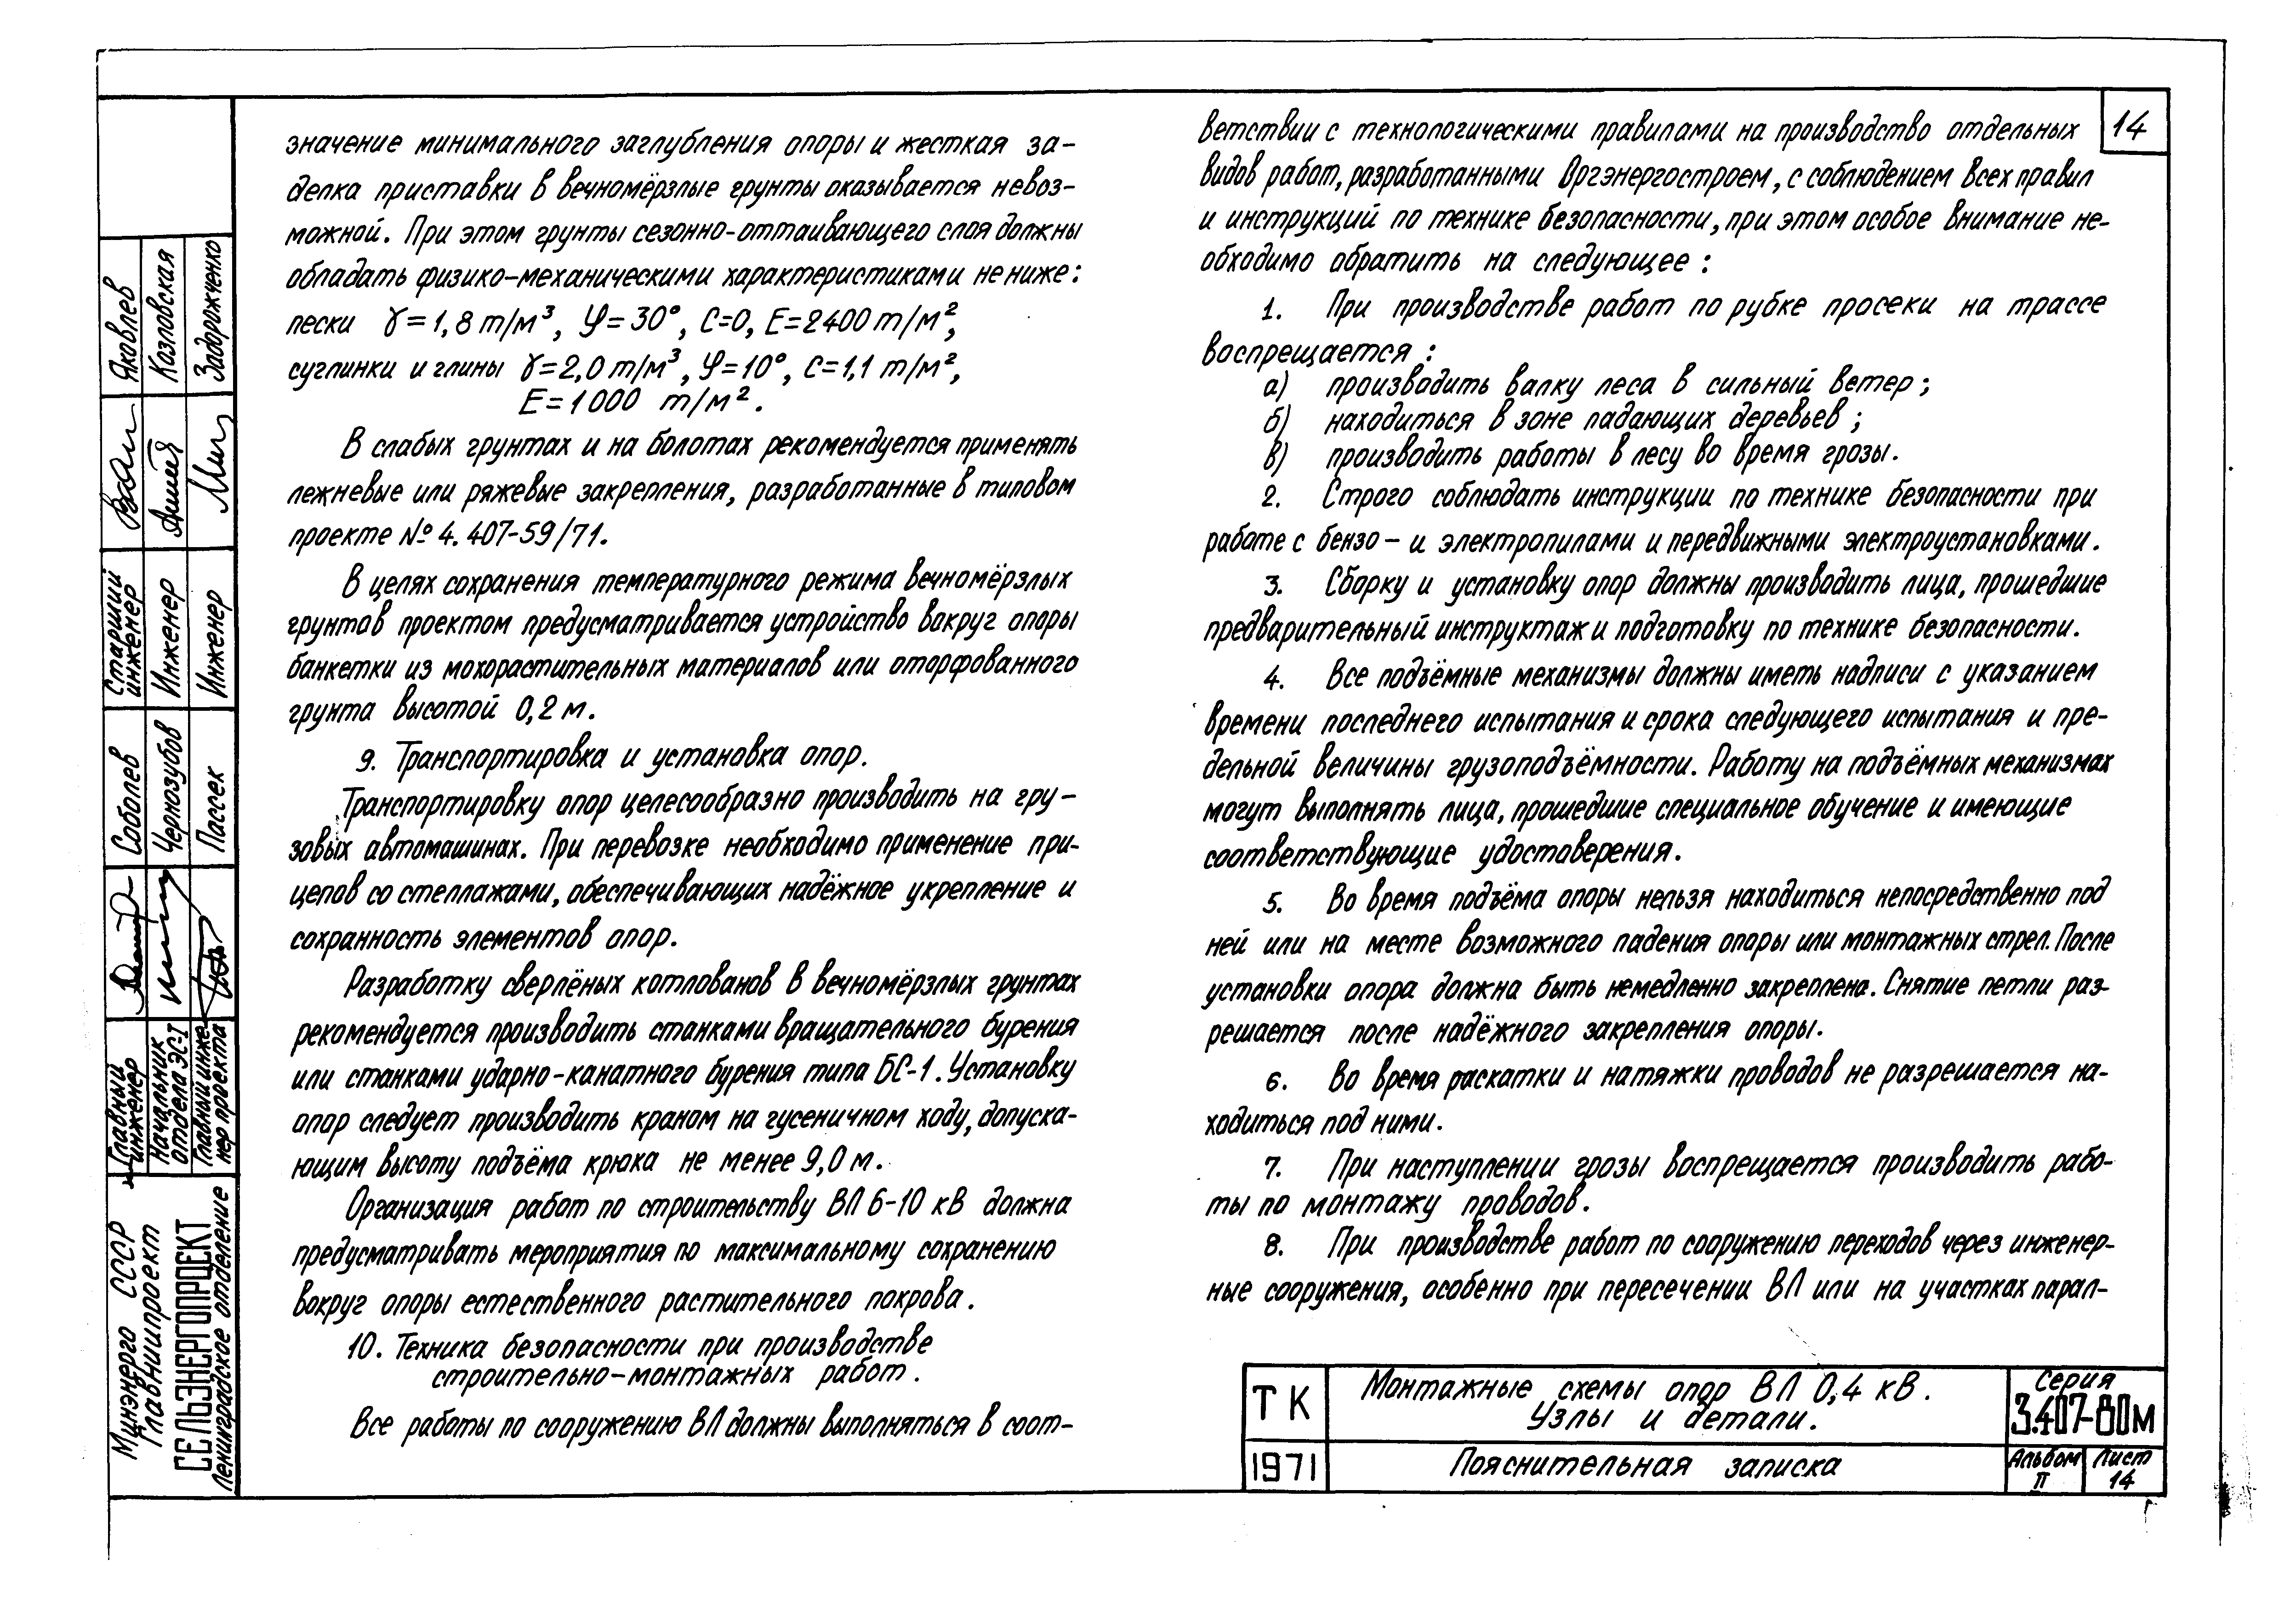 значение минимального заглубления опоры и жесткая за-
делка приставки в вечномёрзлые грунты оказывается невоз-
можной. При этом грунты сезонно-оттаивающего слоя должны
обладать физико-механическими характеристиками не ниже:
пески γ=1,8 т/м³, φ=30°, С=0, Е=2400 т/м²,
суглинки и глины γ=2,0 т/м³, φ=10°, С=1,1 т/м²,
Е=1000 т/м².
В слабых грунтах и на болотах рекомендуется применять
лежневые или ряжевые закрепления, разработанные в типовом
проекте № 4.407-59/71.
В целях сохранения температурного режима вечномёрзлых
грунтов проектом предусматривается устройство вокруг опоры
банкетки из мохорастительных материалов или оторфованного
грунта высотой 0,2 м.
9. Транспортировка и установка опор.
Транспортировку опор целесообразно производить на гру-
зовых автомашинах. При перевозке необходимо применение при-
цепов со стеллажами, обеспечивающих надёжное укрепление и
сохранность элементов опор.
Разработку сверлёных котлованов в вечномёрзлых грунтах
рекомендуется производить станками вращательного бурения
или станками ударно-канатного бурения типа БС-1. Установку
опор следует производить краном на гусеничном ходу, допуска-
ющим высоту подъёма крюка не менее 9,0 м.
Организация работ по строительству ВЛ 6-10 кВ должна
предусматривать мероприятия по максимальному сохранению
вокруг опоры естественного растительного покрова.
10. Техника безопасности при производстве
строительно-монтажных работ.
Все работы по сооружению ВЛ должны выполняться в соот-
14
ветствии с технологическими правилами на производство отдельных
видов работ, разработанными Оргэнергостроем, с соблюдением всех правил
и инструкций по технике безопасности, при этом особое внимание не-
обходимо обратить на следующее:
1. При производстве работ по рубке просеки на трассе
воспрещается:
а) производить валку леса в сильный ветер;
б) находиться в зоне падающих деревьев;
в) производить работы в лесу во время грозы.
2. Строго соблюдать инструкции по технике безопасности при
работе с бензо- и электропилами и передвижными электроустановками.
3. Сборку и установку опор должны производить лица, прошедшие
предварительный инструктаж и подготовку по технике безопасности.
4. Все подъёмные механизмы должны иметь надписи с указанием
времени последнего испытания и срока следующего испытания и пре-
дельной величины грузоподъёмности. Работу на подъёмных механизмах
могут выполнять лица, прошедшие специальное обучение и имеющие
соответствующие удостоверения.
5. Во время подъёма опоры нельзя находиться непосредственно под
ней или на месте возможного падения опоры или монтажных стрел. После
установки опора должна быть немедленно закреплена. Снятие петли раз-
решается после надёжного закрепления опоры.
6. Во время раскатки и натяжки проводов не разрешается на-
ходиться под ними.
7. При наступлении грозы воспрещается производить рабо-
ты по монтажу проводов.
8. При производстве работ по сооружению переходов через инженер-
ные сооружения, особенно при пересечении ВЛ или на участках парал-
ТК
1971
Монтажные схемы опор ВЛ 0,4 кВ.
Узлы и детали.
Пояснительная записка
Серия
3.407-80м
Альбом
II
Лист
14
Минэнерго СССР
Главниипроект
СЕЛЬЭНЕРГОПРОЕКТ
Ленинградское отделение
Главный
инженер
Соболев
Начальник
отдела ЭС-1
Чернозубов
Главный инже-
нер проекта
Пассек
Старший
инженер
Яковлев
Инженер
Козловская
Инженер
Задорожченко